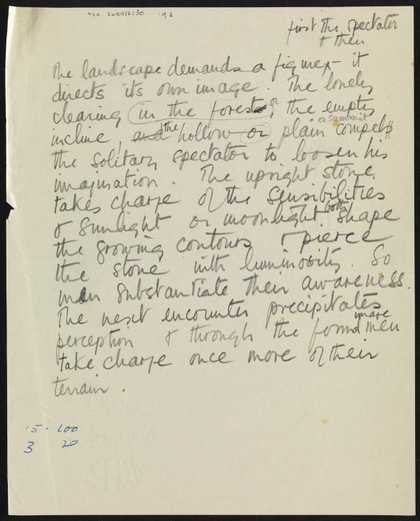 first the spectator
& then
The landscape demands a figure - it
directs its own image. The lonely
clearing (in the forest), the empty
incline, and the hollow or plain compels
the solitary spectator to loosen his
imagination. The upright stone
takes charge of the sensibilities
& sunlight or moonlight both shape
the growing contours & pierce
the stone with luminosity. So
men substantiate their awareness.
The next encounter precipitates
perception & through the found image men
take charge once more of their
terrain.
5 - 100
3 20